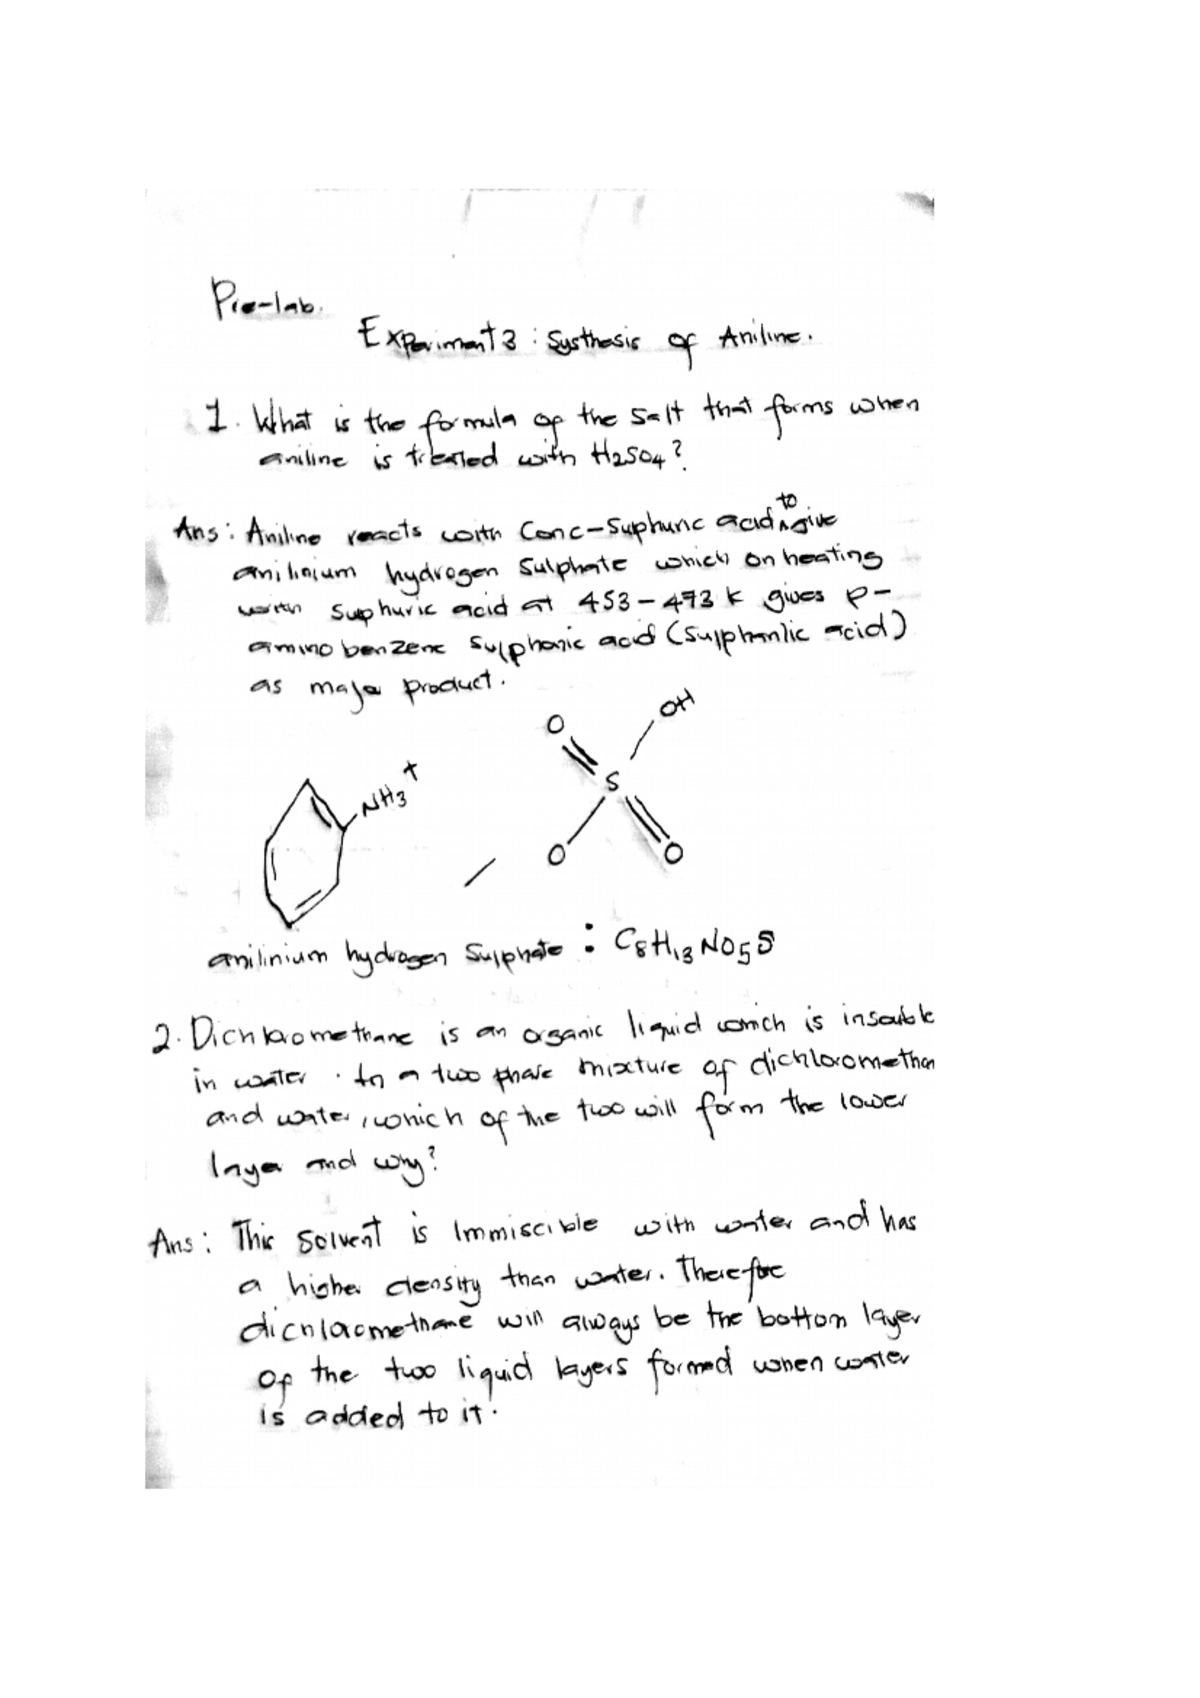 Pre-lab.
Experiment 3 : Systhesis of Aniline.
1. What is the formula of the salt that forms when
aniline is treated with H2SO4?
to
Ans: Aniline reacts with Conc-Suphuric acid ^ give
anilinium hydrogen Sulphate which on heating
with Suphuric acid at 453-473 k gives P-
amino benzene Sulphonic acid (Sulphanlic acid)
as major product.
OH
O
S
NH3 +
O
O
anilinium hydrogen Sulphate : C8H13NO5S
2. Dichloromethane is an organic liquid which is insouble
in water . In a two phase mixture of dichloromethan
and water, which of the two will form the lower
layer and why?
Ans: This Solvent is Immiscible with water and has
a higher density than water. Therefore
dichloromethane will always be the bottom layer
of the two liquid layers formed when water
is added to it.